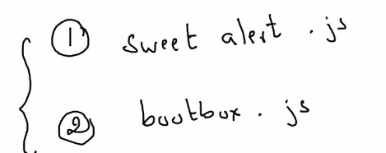 ① sweet alert . js
② bootbox . js